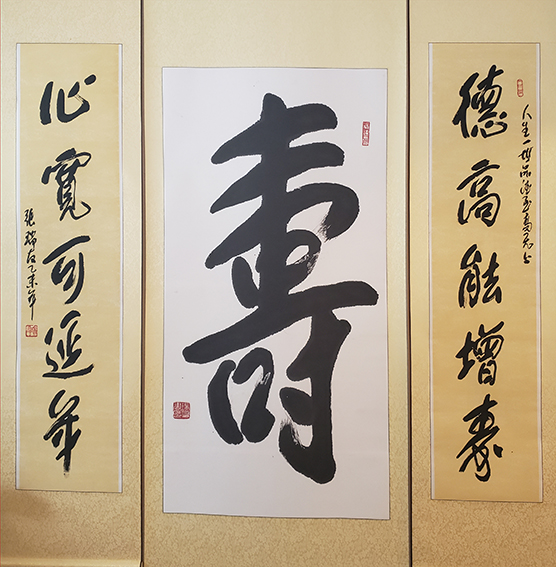 人生一世品德至高
德高能增壽
壽
心寬可延年
張瑞乙未年